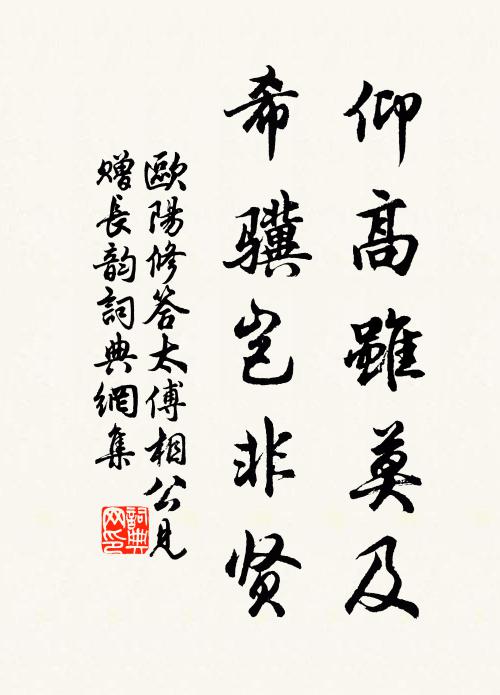 仰高雖莫及
希驥岂非贤
歐陽修答太傅相公見
赠長韵詞典網集
詞典
网印